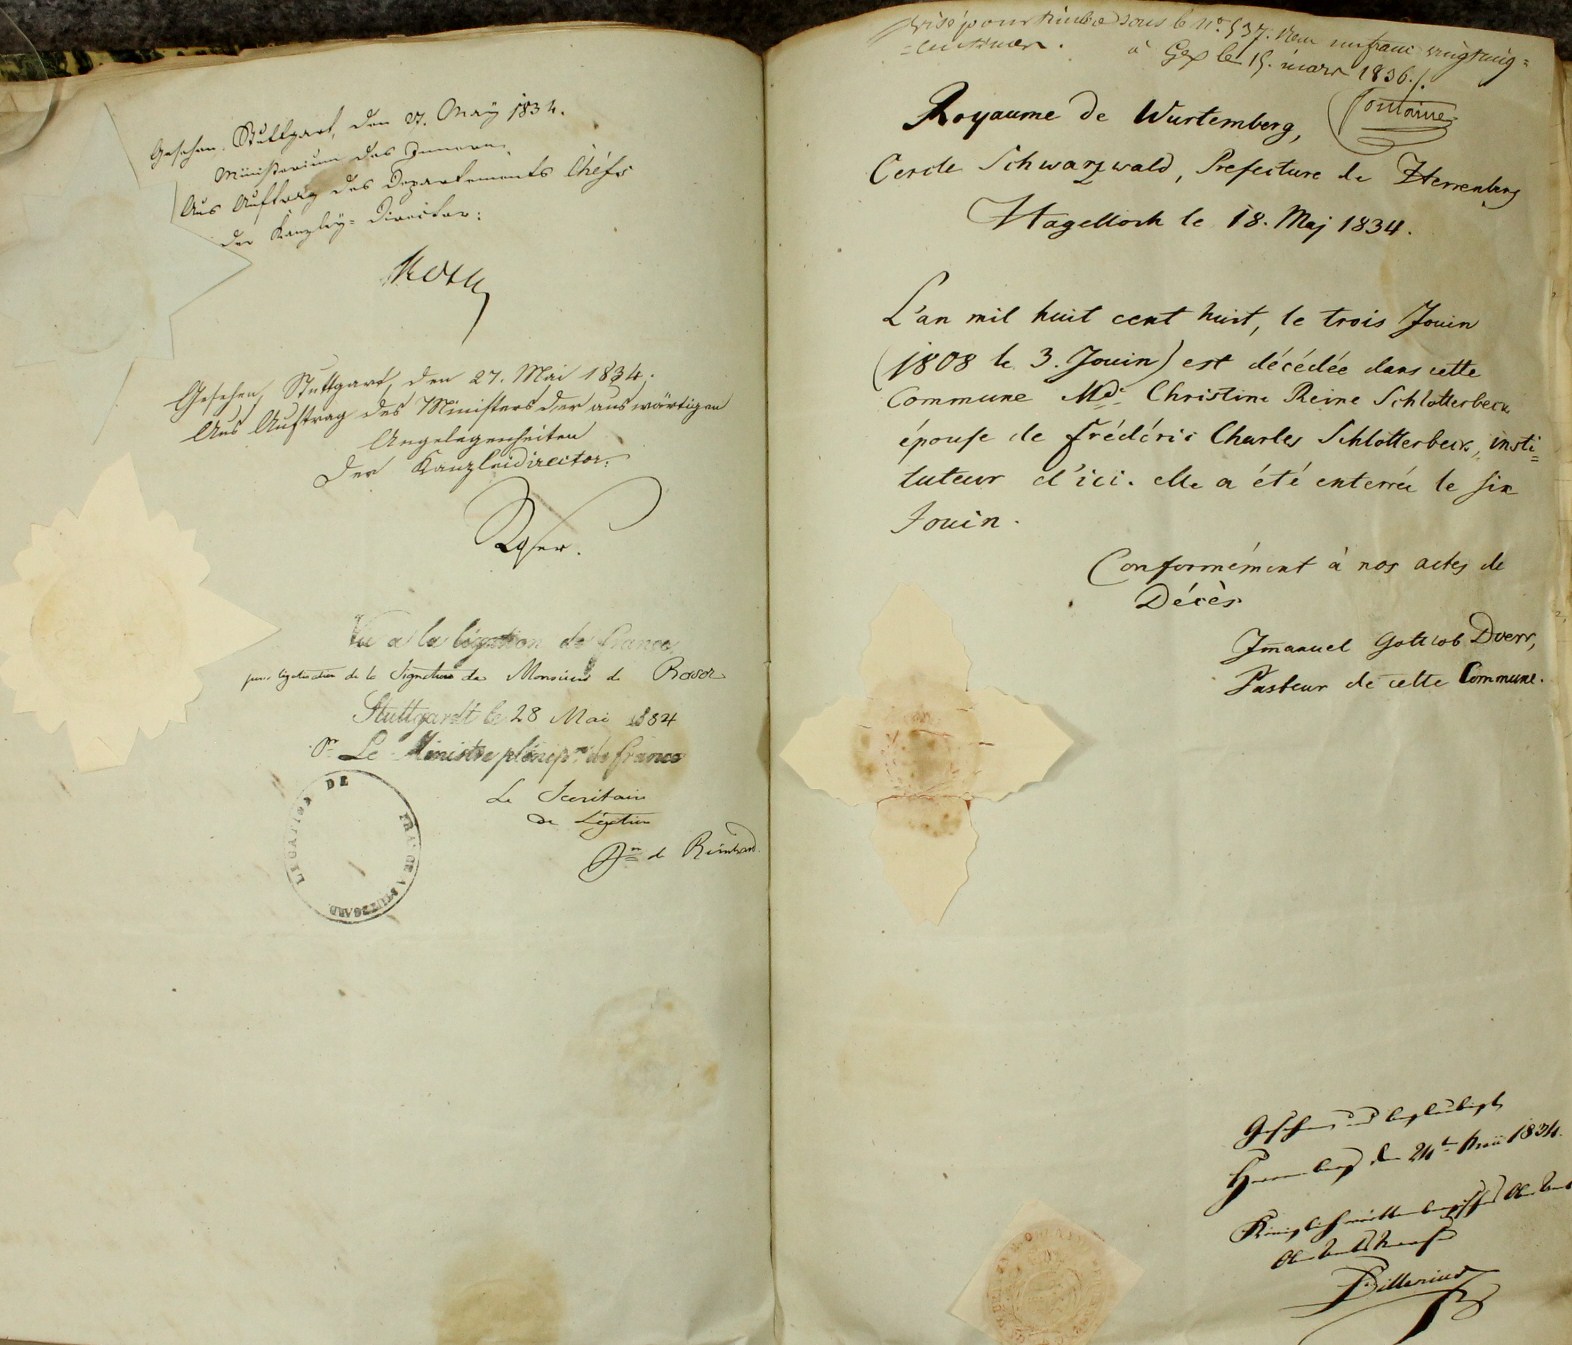 Gesehen. Stuttgart, den 27. May 1834.
Ministerium des Innern.
Aus Auftrag des Departements Chefs
der Kanzley-Director:
Roth
Gesehen, Stuttgart, den 27. Mai 1834.
Aus Auftrag des Ministers der auswärtigen
Angelegenheiten
Der Kanzleidirector:
Roser.
Vu a la légation de france
pour légalisation de la Signature de Monsieur de Roser
Stuttgardt le 28 Mai 1834
Pr Le Ministre plénip.re de france
Le Secrétaire
de Légation
Bon de Reinhard.
LEGATION DE FRANCE A STUTTGARD.
Visé pour timbre sous le No. 537. Reçu un franc vingt cinq=
=centimes. à Gex le 15. mars 1836./.
Fontaine
Royaume de Wurtemberg,
Cercle Schwarzwald, Prefecture de Herrenberg
Hagelloch le 18. Maj 1834.
L'an mil huit cent huit, le trois Jouin
(1808 le 3. Jouin) est décédée dans cette
Commune Mde Christine Reine Schlotterbeck
épouse de Frédéric Charles Schlotterbeck, insti=
tuteur d'ici. elle a été enterrée le six
Jouin.
Conformément à nos actes de
Décès
Jmanuel Gottlob Doerr,
Pasteur de cette Commune.
Gesehen und beglaubigt
Herrenberg den 24ten Mai 1834.
Königlich württembergisches Oberamt